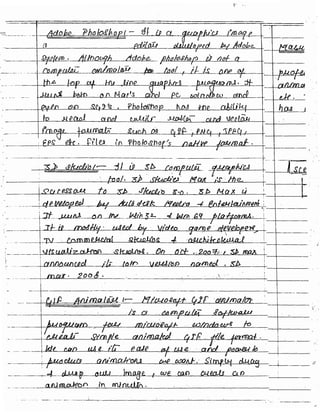 Adobe Photoshop:- It is a graphics image
a editor developed by Adobe
System. Although Adobe photoshop is not a
computer animator tool, it is one of
the top of the line graphics programs. It
runs both on Mac's and PC window and
even on SGI's. Photoshop has the ability
to read and raster and vector
image formats such as GIF, PNG, JPEG,
EPS etc. files in Photoshop's native format.
3D studio:- It is 3D computer graphics
tool. 3D Studio Max is the
successor to 3D studio 5.0. 3D Max is
developed by Autodesk Media & Entertainment.
It runs on the Win32 & Win 64 platforms.
It is mostly used by Video game developers,
TV commercial studios & architectural
visualization studios. On Oct. 2007, 3D max
announced its 10th version named 3D
max 2008.
GIF Animator:- Microsoft GIF animator
is a computer software
program for microsoft windows to
create simple animated GIF file format.
We can use its ease of use and
produce animations we want. Simply drag
& drop our image, we can create an
animation in minutes.